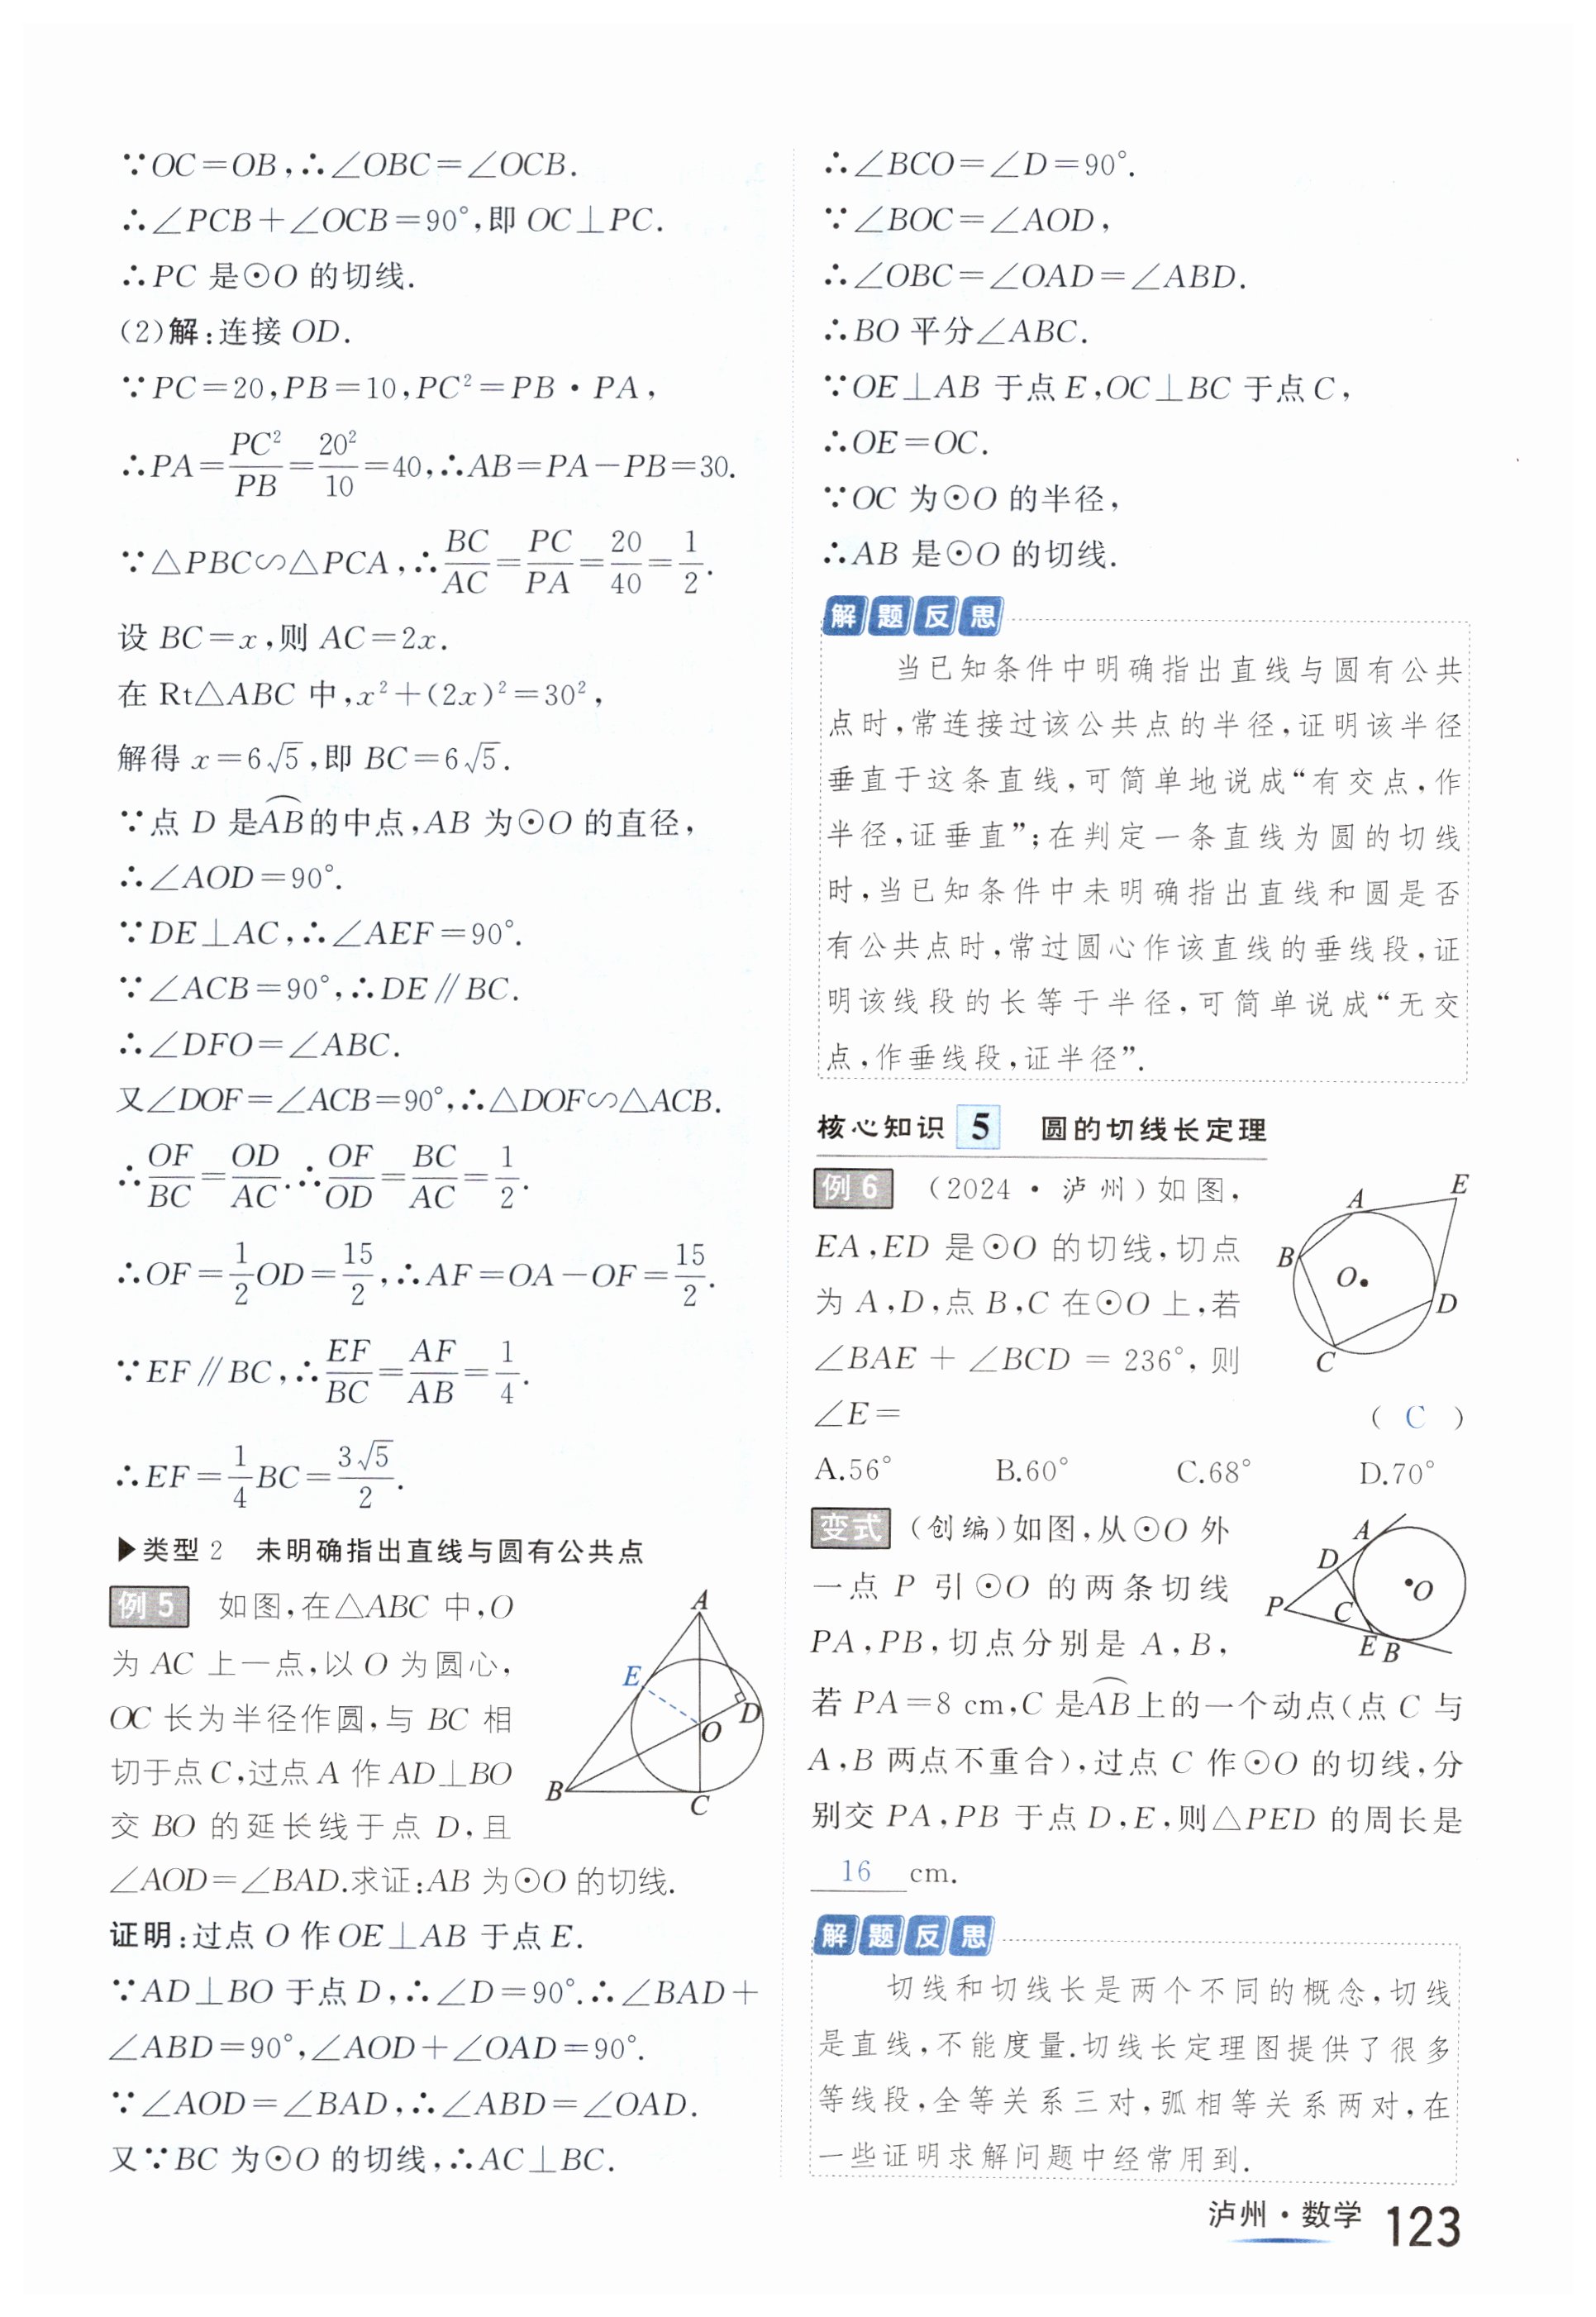 ∵OC=OB,∴∠OBC=∠OCB.
∴∠PCB+∠OCB=90°,即 OC⊥PC.
∴PC 是⊙O 的切线.
(2)解:连接 OD.
∵PC=20,PB=10,PC²=PB·PA,
∴PA=PC²/PB=20²/10=40,∴AB=PA-PB=30.
∵△PBC∽△PCA,∴BC/AC=PC/PA=20/40=1/2.
设 BC=x,则 AC=2x.
在 Rt△ABC 中,x²+(2x)²=30²,
解得 x=6√5,即 BC=6√5.
∵点 D 是⌒AB的中点,AB 为⊙O 的直径,
∴∠AOD=90°.
∵DE⊥AC,∴∠AEF=90°.
∵∠ACB=90°,∴DE∥BC.
∴∠DFO=∠ABC.
又∠DOF=∠ACB=90°,∴△DOF∽△ACB.
∴OF/BC=OD/AC.∴OF/OD=BC/AC=1/2.
∴OF=1/2OD=15/2,∴AF=OA-OF=15/2.
∵EF∥BC,∴EF/BC=AF/AB=1/4.
∴EF=1/4BC=3√5/2.
▶类型 2 未明确指出直线与圆有公共点
例 5 如图,在△ABC 中,O
为 AC 上一点,以 O 为圆心,
OC 长为半径作圆,与 BC 相
切于点 C,过点 A 作 AD⊥BO
交 BO 的延长线于点 D,且
∠AOD=∠BAD.求证:AB 为⊙O 的切线.
A
E
D
O
B
C
证明:过点 O 作 OE⊥AB 于点 E.
∵AD⊥BO 于点 D,∴∠D=90°.∴∠BAD+
∠ABD=90°,∠AOD+∠OAD=90°.
∵∠AOD=∠BAD,∴∠ABD=∠OAD.
又∵BC 为⊙O 的切线,∴AC⊥BC.
∴∠BCO=∠D=90°.
∵∠BOC=∠AOD,
∴∠OBC=∠OAD=∠ABD.
∴BO 平分∠ABC.
∵OE⊥AB 于点 E,OC⊥BC 于点 C,
∴OE=OC.
∵OC 为⊙O 的半径,
∴AB 是⊙O 的切线.
解题反思
当已知条件中明确指出直线与圆有公共
点时,常连接过该公共点的半径,证明该半径
垂直于这条直线,可简单地说成“有交点,作
半径,证垂直”;在判定一条直线为圆的切线
时,当已知条件中未明确指出直线和圆是否
有公共点时,常过圆心作该直线的垂线段,证
明该线段的长等于半径,可简单说成“无交
点,作垂线段,证半径”.
核心知识 5 圆的切线长定理
例 6 (2024·泸州)如图,
EA,ED 是⊙O 的切线,切点
为 A,D,点 B,C 在⊙O 上,若
∠BAE+∠BCD=236°,则
∠E= ( C )
A
E
B
O
D
C
A.56° B.60° C.68° D.70°
变式 (创编)如图,从⊙O 外
一点 P 引⊙O 的两条切线
PA,PB,切点分别是 A,B,
A
D
O
P
C
E
B
若 PA=8 cm,C 是⌒AB上的一个动点(点 C 与
A,B 两点不重合),过点 C 作⊙O 的切线,分
别交 PA,PB 于点 D,E,则△PED 的周长是
16 cm.
解题反思
切线和切线长是两个不同的概念,切线
是直线,不能度量.切线长定理图提供了很多
等线段,全等关系三对,弧相等关系两对,在
一些证明求解问题中经常用到.
泸州·数学 123